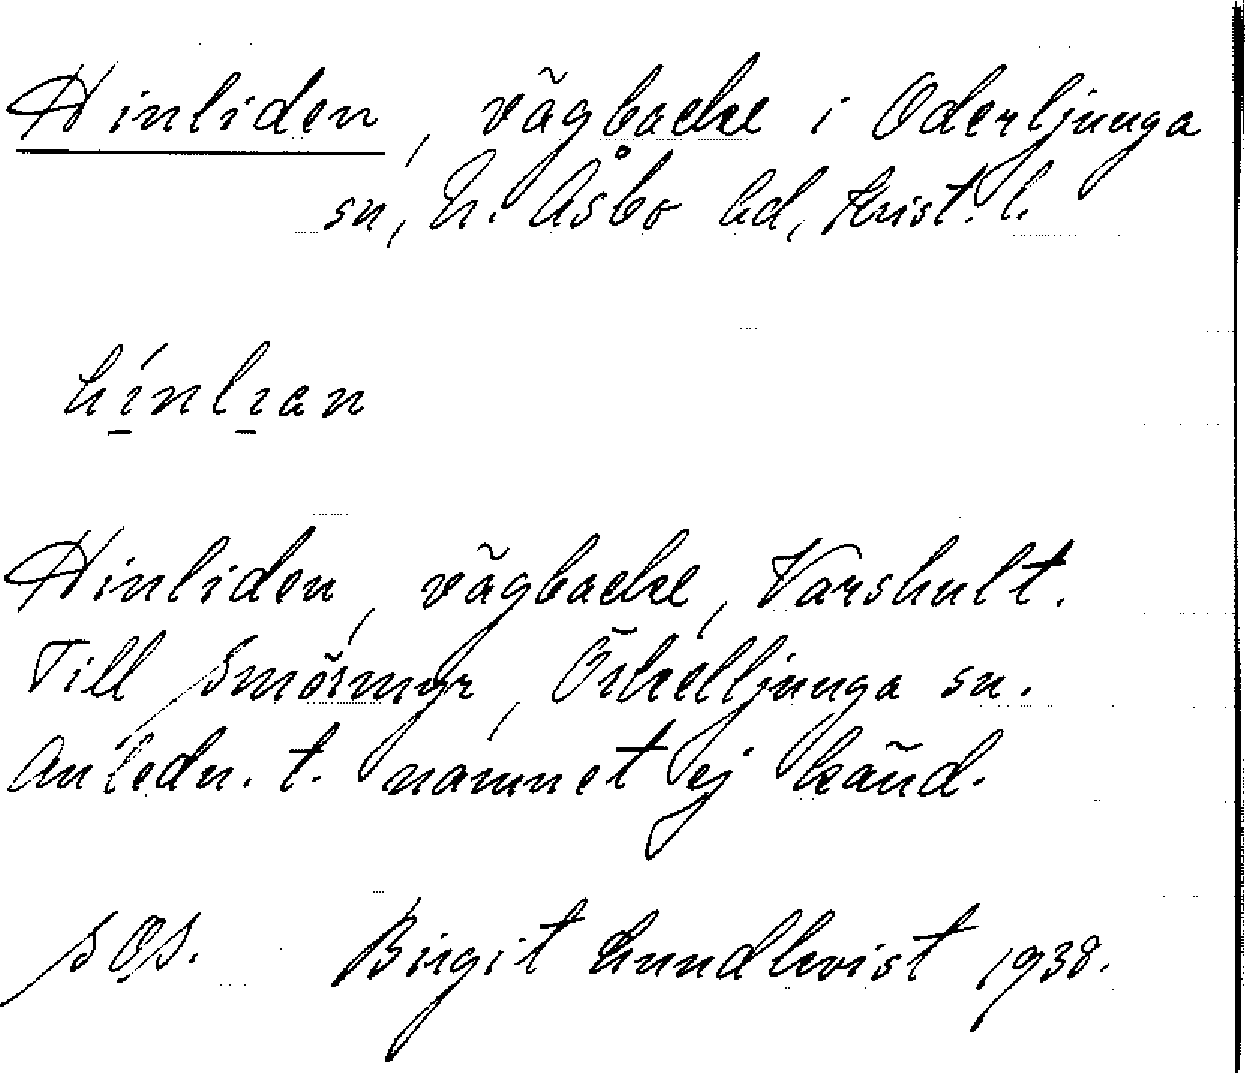 Hinliden, vägbacke i Oderljunga
sn, N. Åsbo hd, Krist. l.
hínlian
Hinliden, vägbacke, Varshult.
Till Smörmyr, Örkelljunga sn.
Anledn. t. namnet ej känd.
SOS. Birgit Lundkvist 1938.